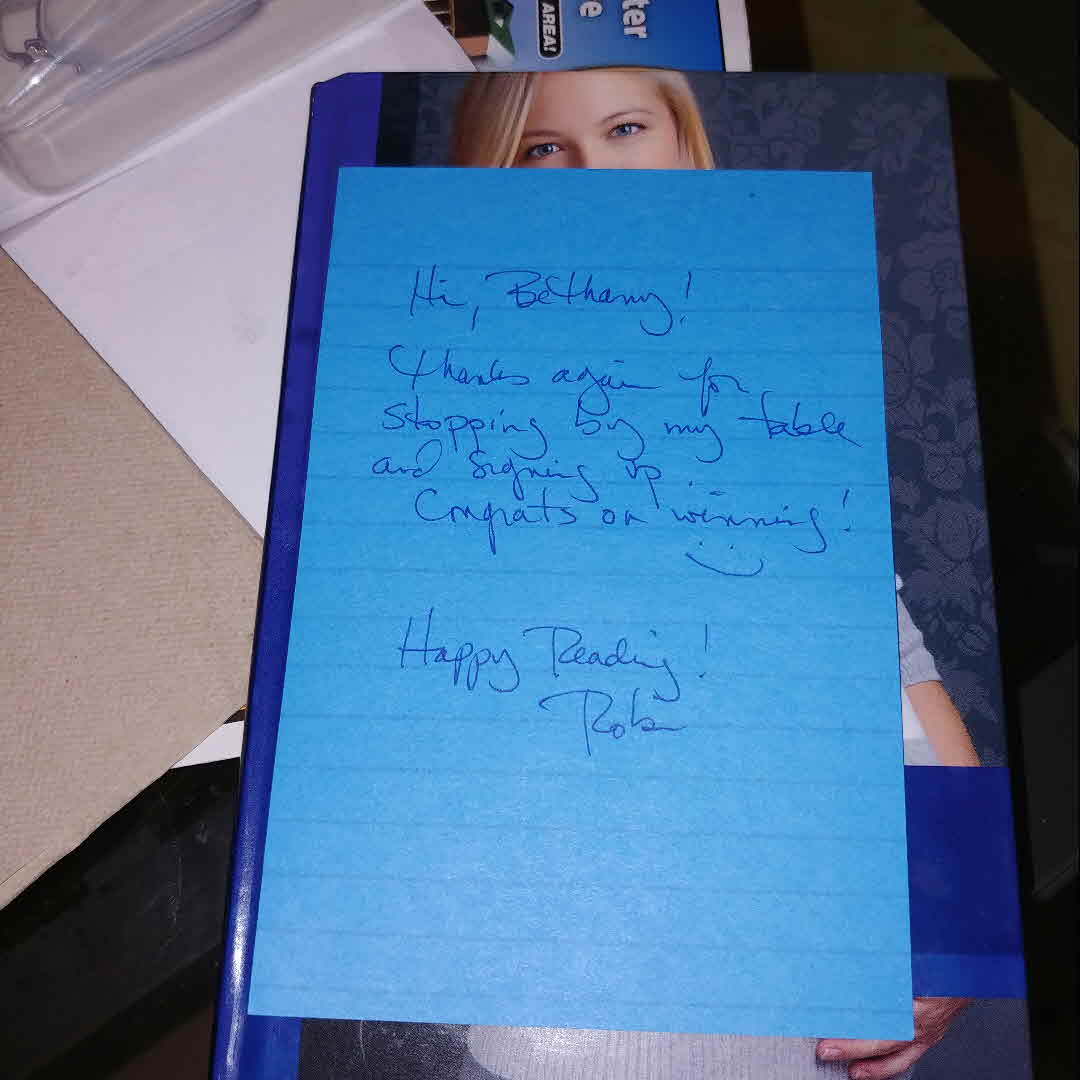 ter
e
AREA!
Hi, Bethany!
Thanks again for
stopping by my table
and signing up.
Congrats on winning!
Happy Reading!
Robin